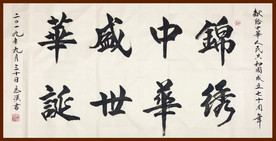 献给中华人民共和国成立七十周年
錦绣
中華
盛世
華誕
二〇一九年九月三十日